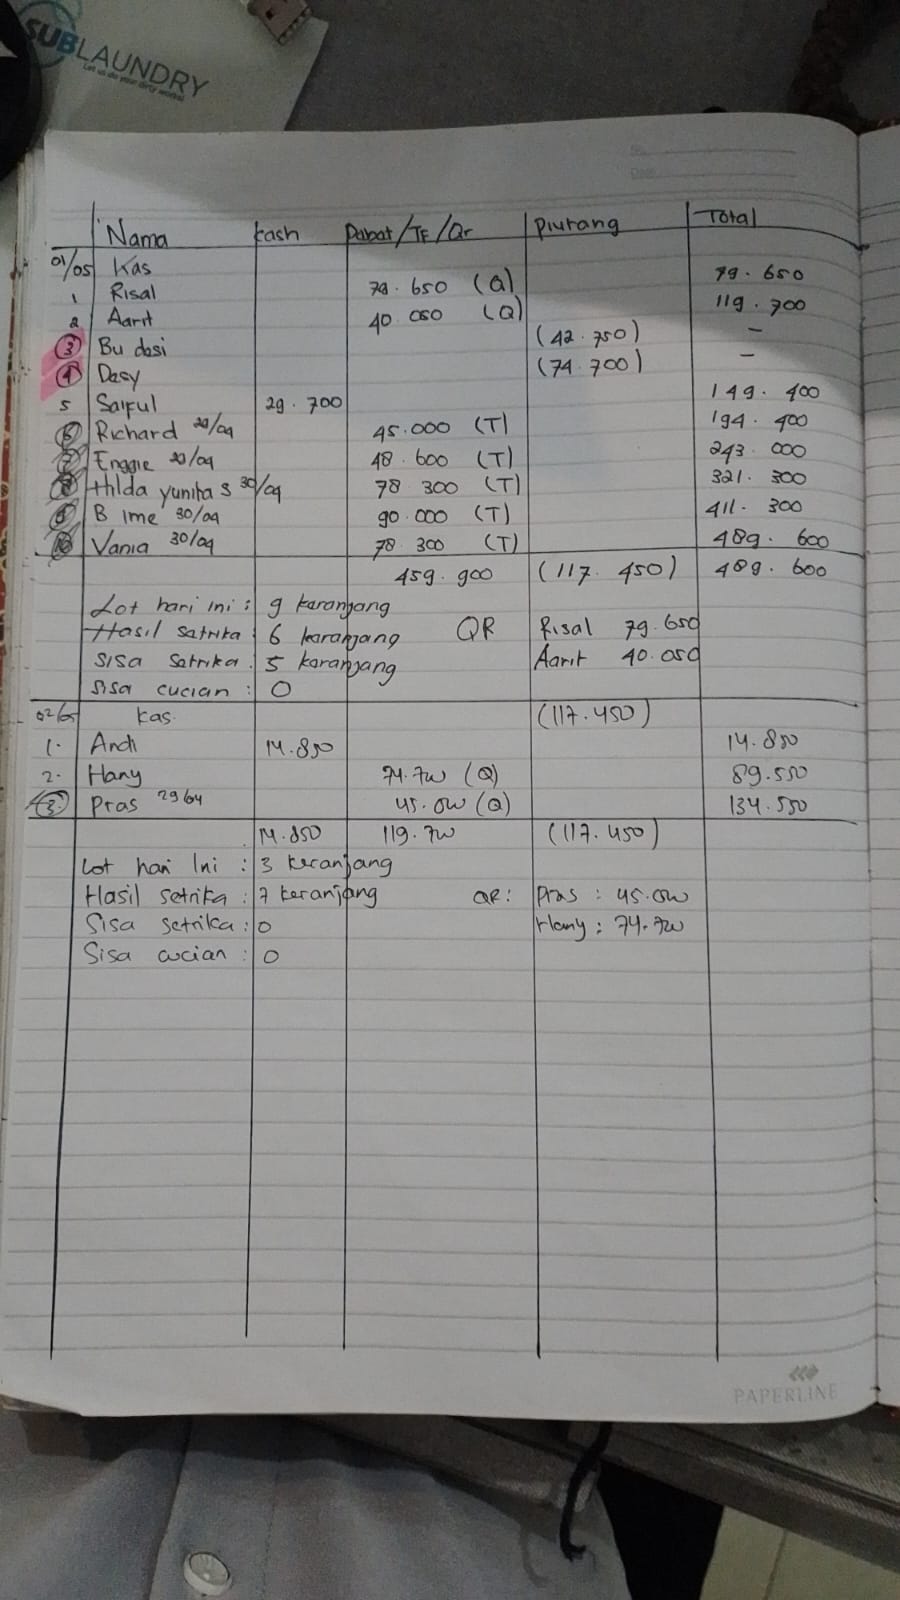 SUBLAUNDRY
Let us do your dirty works!
Nama kash Debet/TF/Qr Piutang Total
01/05 Kas
1 Risal 79.650 (Q) 79.650
2 Aarit 40.050 (Q) 119.700
3 Bu desi (42.750) -
4 Desy (74.700) -
5 Saiful 29.700 149.400
6 Richard 29/04 45.000 (T) 194.400
7 Enggie 29/04 48.600 (T) 243.000
8 Hilda yunita S 30/04 78.300 (T) 321.300
9 B Ime 30/04 90.000 (T) 411.300
10 Vania 30/04 78.300 (T) 489.600
459.900 (117.450) 489.600
Lot hari ini : 9 keranjang
Hasil setrika : 6 keranjang QR Risal 79.650
Sisa setrika : 5 keranjang Aarit 40.050
Sisa cucian : 0
02/05 kas. (117.450)
1. Andi 14.850 14.850
2. Hany 74.700 (Q) 89.550
3. Pras 29/04 45.000 (Q) 134.550
14.850 119.700 (117.450)
Lot hari Ini : 3 keranjang
Hasil setrika : 7 keranjang QR: Pras : 45.000
Sisa setrika : 0 Hany : 74.700
Sisa cucian : 0
PAPERLINE